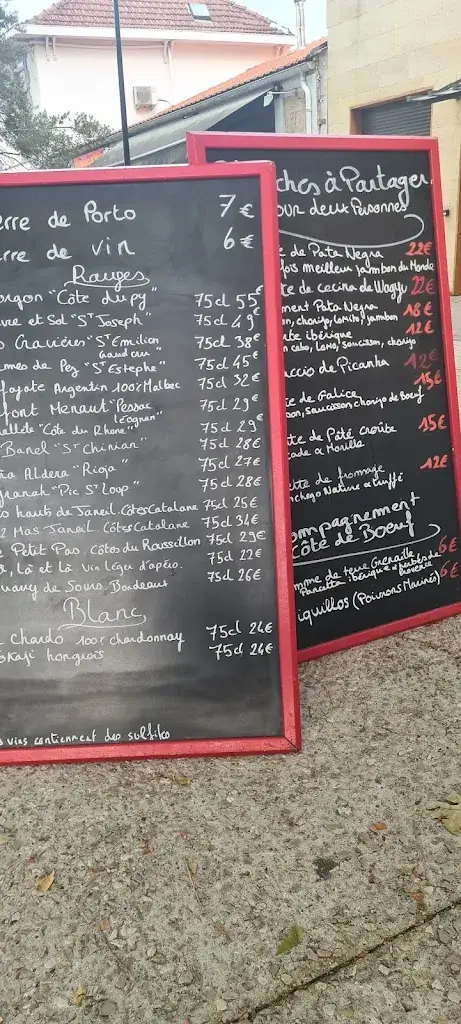 erre de Porto 7€
rre de vin 6€
Rouges
orgon "Côte du py" 75cl 55€
re et Sol "St Joseph" 75cl 49€
Gravières "St Emilion 75cl 38€
Grand cru"
mes de Pez "St Estephe" 75cl 45€
Argentin 100% Malbec 75cl 32€
font Menaut "Pessac 75cl 29€
Léognan"
"Côte du Rhone" 75cl 29€
Banel "St Chinian" 75cl 28€
ña Aldera "Rioja" 75cl 27€
granah "Pic St Loup" 75cl 28€
s hauts de Janeil. Côtes Catalane 75cl 25€
2 Mas Janeil. Côtes Catalane 75cl 34€
Petit Pas. Côtes du Roussillon 75cl 29€
, Là et là. Vin léger d'apéro. 75cl 22€
de Sours. Bordeaux 75cl 26€
Blanc
Chardo 100% chardonnay 75cl 24€
okaji hongrois 75cl 24€
s vins contiennent des sulfites
ches à Partager
our deux Personnes
te de Pata Negra 22€
fois meilleur jambon du Monde
te de cecina de Wagyu 22€
ment Pata Negra 18€
on, chorizo, Lomito, jambon
nte ibérique 12€
n cebo, Lomo, Saucisson, chorizo
ccio de Picanha 12€
te de Galice 15€
on, Saucisson, chorizo de Bœuf
te de Pâté Croûte 15€
tade à Morille
ette de fromage 12€
nchego Nature et truffé
ompagnement
Côte de Bœuf
mme de terre Grenaille 6€
Pancetta ibérique et herbes de
Provence
iquillos (Poivrons Marinés) 6€